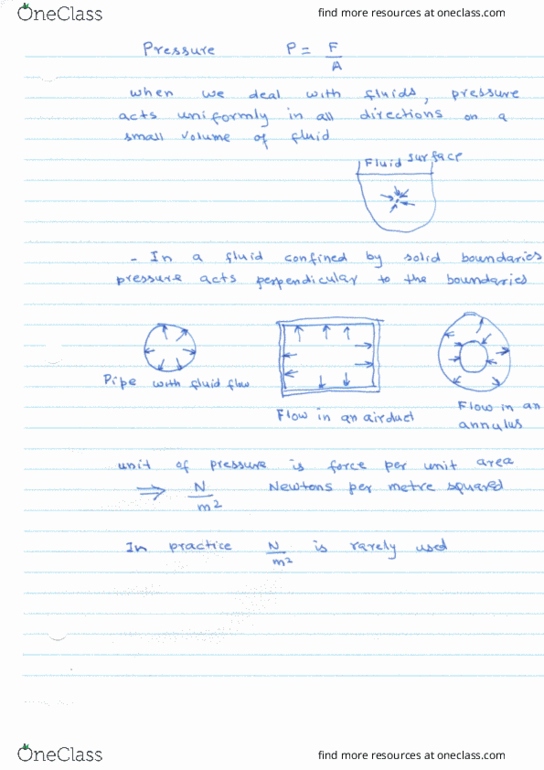 OneClass
find more resources at oneclass.com
Pressure P = F/A
when we deal with fluids, pressure
acts uniformly in all directions on a
small volume of fluid
Fluid surface
- In a fluid confined by solid boundaries
pressure acts perpendicular to the boundaries
Pipe with fluid flow
Flow in an airduct
Flow in an
annulus
unit of pressure is force per unit area
⇒ N/m² Newtons per metre squared
In practice N/m² is rarely used
OneClass
find more resources at oneclass.com